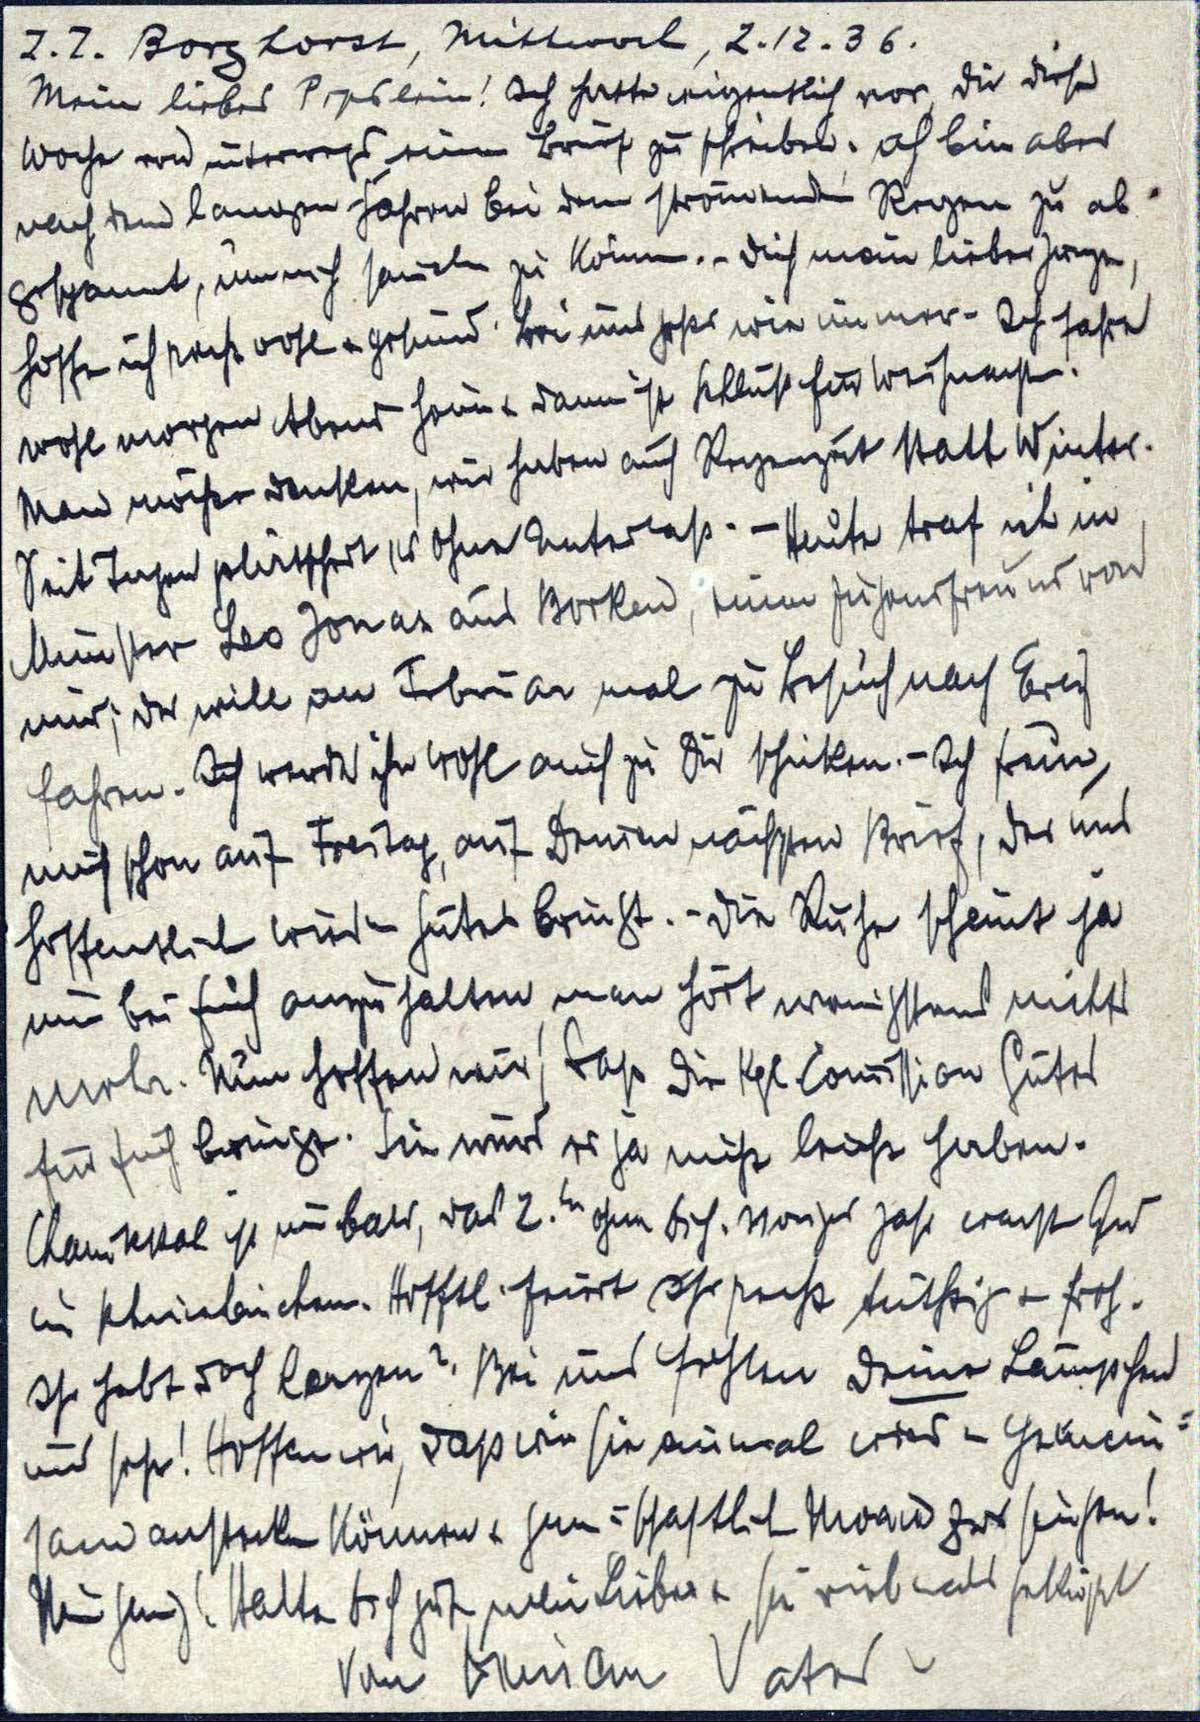 z.Z. Borghorst, Mittwoch, 2.12.36.
Mein liebes Popslein! Ich hatte eigentlich vor, Dir diese
Woche von unterwegs einen Brief zu schreiben. Ich bin aber
nach dem langen Fahren bei dem strömenden Regen zu ab-
gespannt, um noch zu können. - Dich mein lieber Junge,
hoffe ich recht wohl & gesund. Bei uns gehts wie immer - Ich fahre
wohl morgen Abend heim & dann ist Schluß für Weihnacht.
Man möchte denken, wir haben auch Regenzeit statt Winter.
Seit Tagen plätschert es ohne Unterlaß. - Heute traf ich in
Münster Leo Jonas aus Borken, einen Jugendfreund von
mir; der will im Februar mal zu Besuch nach Erez
fahren. Ich werde ihn wohl auch zu Dir schicken. - Ich freue
mich schon auf Freitag, auf Deinen nächsten Brief, der uns
hoffentlich wieder Gutes bringt. - Die Ruhe scheint ja
nun bei Euch anzuhalten, man hört wenigstens nichts
mehr. Nun hoffen wir, daß die Kgl. Comission Gutes
für Euch bringe. Sie wird es ja nicht leicht haben.
Chanukkah ist nun bald, das 2. ohne Dich. Voriges Jahr warst Du
in Schniebinchen. Hofftl. feiert Ihr recht tüchtig & froh.
Ihr habt doch Kerzen? Bei uns fehlen Deine Lämpchen
uns sehr! Hoffen wir, daß wir sie einmal wieder gemein-
sam anstecken können & gemeinschaftlich Moaus zur singen!
Halte Dich gut, mein Lieber & sei vielmals geküsst
von Deinem Vater